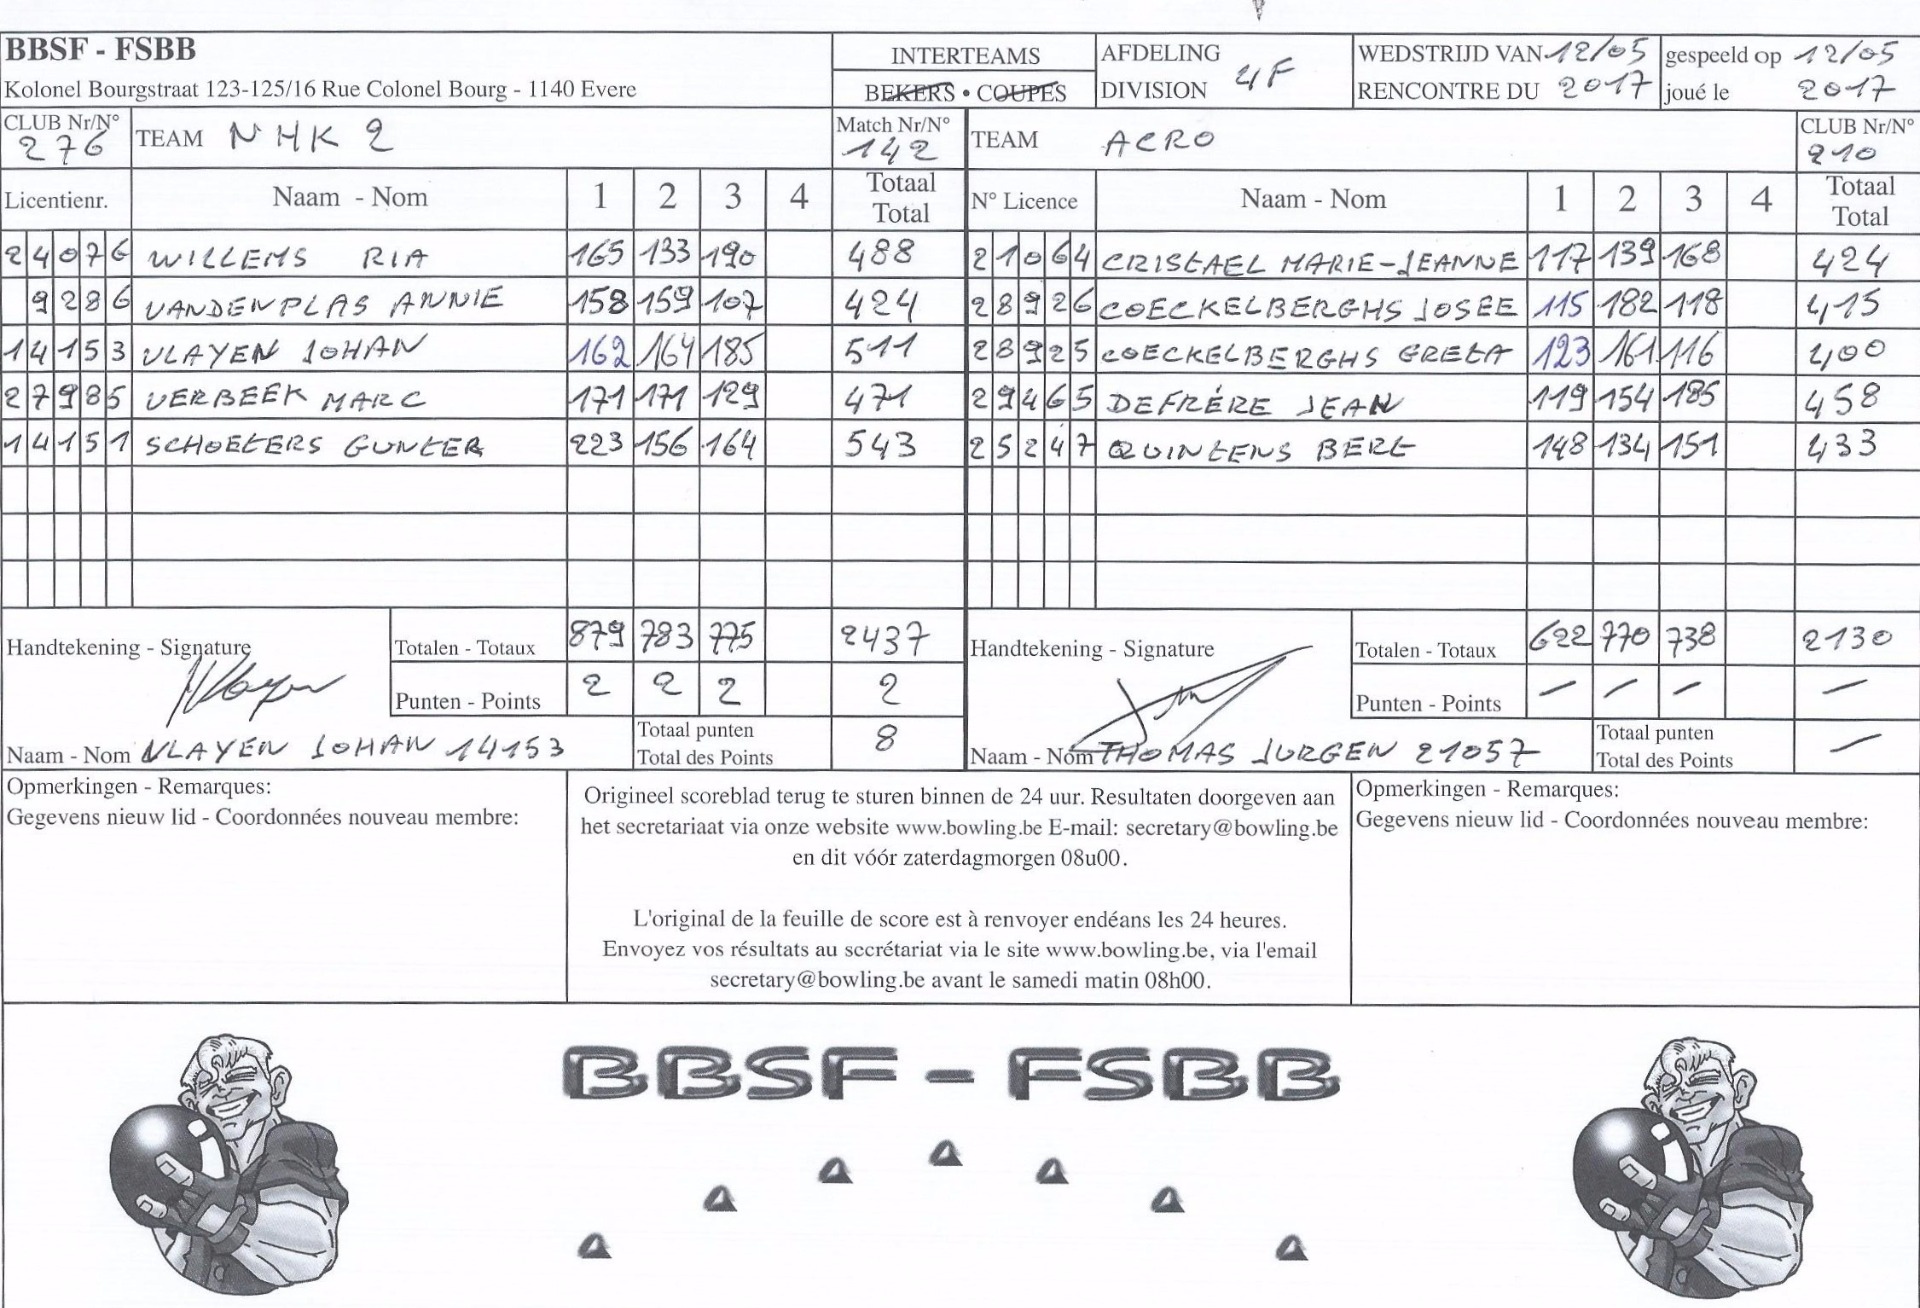 BBSF - FSBB
Kolonel Bourgstraat 123-125/16 Rue Colonel Bourg - 1140 Evere
INTERTEAMS
BEKERS • COUPES
AFDELING
DIVISION 4F
WEDSTRIJD VAN 12/05
RENCONTRE DU 2017
gespeeld op 12/05
joué le 2017
CLUB Nr/N° 276
TEAM NHK 2
Match Nr/N° 142
TEAM ACRO
CLUB Nr/N° 210
Licentienr. Naam - Nom 1 2 3 4 Totaal Total
N° Licence Naam - Nom 1 2 3 4 Totaal Total
24076 WILLEMS RIA 165 133 190 488
21064 CRISTAEL MARIE-JEANNE 117 139 168 424
9286 VANDENPLAS ANNIE 158 159 107 424
28926 COECKELBERGHS JOSEE 115 182 118 415
14153 VLAYEN JOHAN 162 164 185 511
28925 COECKELBERGHS GRETA 123 161 116 400
27985 VERBEEK MARC 171 171 129 471
29465 DEFRÉRE JEAN 119 154 185 458
14151 SCHOETERS GUNTER 223 156 164 543
25247 QUINTENS BERT 148 134 151 433
Handtekening - Signature
Totalen - Totaux 879 783 775 2437
Punten - Points 2 2 2 2
Naam - Nom VLAYEN JOHAN 14153
Totaal punten
Total des Points 8
Handtekening - Signature
Totalen - Totaux 622 770 738 2130
Punten - Points — — — —
Naam - Nom THOMAS JURGEN 21057
Totaal punten
Total des Points —
Opmerkingen - Remarques:
Gegevens nieuw lid - Coordonnées nouveau membre:
Origineel scoreblad terug te sturen binnen de 24 uur. Resultaten doorgeven aan
het secretariaat via onze website www.bowling.be E-mail: secretary@bowling.be
en dit vóór zaterdagmorgen 08u00.
L'original de la feuille de score est à renvoyer endéans les 24 heures.
Envoyez vos résultats au secrétariat via le site www.bowling.be, via l'email
secretary@bowling.be avant le samedi matin 08h00.
Opmerkingen - Remarques:
Gegevens nieuw lid - Coordonnées nouveau membre:
BBSF - FSBB